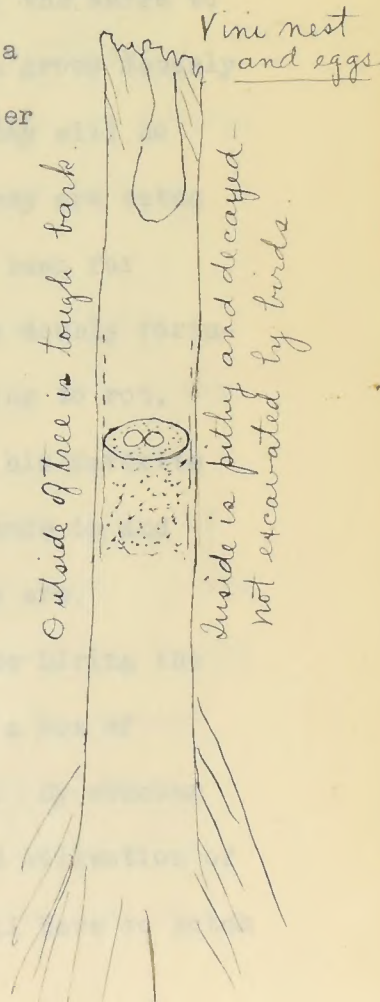 a
er
Vini nest
and eggs.
Outside of tree is tough bark.
Inside is pithy and decayed—
not excavated by birds.